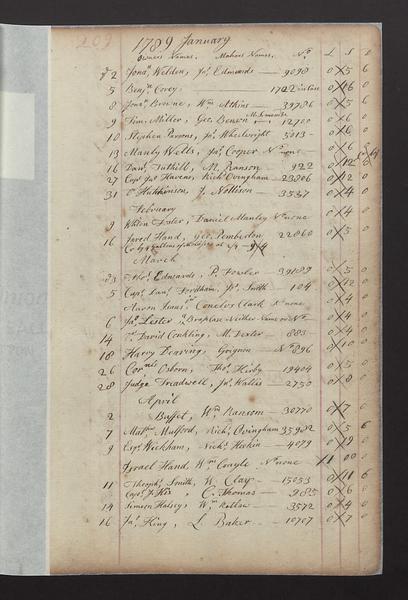 209
1789 January
Owners Names. Makers Names. No. L S D
2 Jona. Weldon, Jos. Edmonds — 9098 0 5 6
5 Benjn. Corey, 0 16 0
8 Jona. Browne, Wm. Atkins — 39786 0 5 6
9 Tim. Miller, Geo. Benson — 12700 0 6 0
10 Stephen Parsons, Jno. Wheelwright — 5013 — 0 6 0
13 Manly Wells, Jno. Cooper No. none 0 6
16 Danl. Tuthill, M. Ranson — 922 0 12
27 Capt. Jno. Havens, Richd. Ovingham 23806 0 12 0
31 Hutchinson, J. Nollison — 3537 0 4 0
February
9 Foster, Daniel Manley No. none 0 4 0
16 Jared Hand, Geo. Pemberton 22860 0 5 0
Cr. by Gallons of Molasses at
March
3 Thos. Edwards, P. Fowler 39189 0 5 0
5 Capt. Danl. Fordham, Jno. Smith — 104 0 12 0
Aaron Isaacs, Clark No. none 0 4 0
6 Jno. Lester, Neither Name or No. 0 4 0
14 David Conkling, M. Dexter — 883 0 4 0
18 Harry Dearing, Grignon No. 896 0 10 0
26 Cornls. Osborn, Thos. Kirby — 19404 0 5 0
28 Judge Treadwell, Jno. Wallis 2750 0 8 0
April
2 Buffet, Wm. Ranson 30770 0 7 0
7 Matthw. Mulford, Richd. Ovingham 35982 0 5 6
9 Esqr. Wickham, Nichs. — 4079 0 9 0
Israel Hand, Wm. No. none 1 00 0
11 Theophs. Smith, W. Clay — 15053 0 11 6
Capt. J. Hix, C. Thomas — 985 0 6 0
14 Simeon Halsey, Wm. — 3572 0 4 0
16 Jno. King, L. Baker — 10707 0 7 0